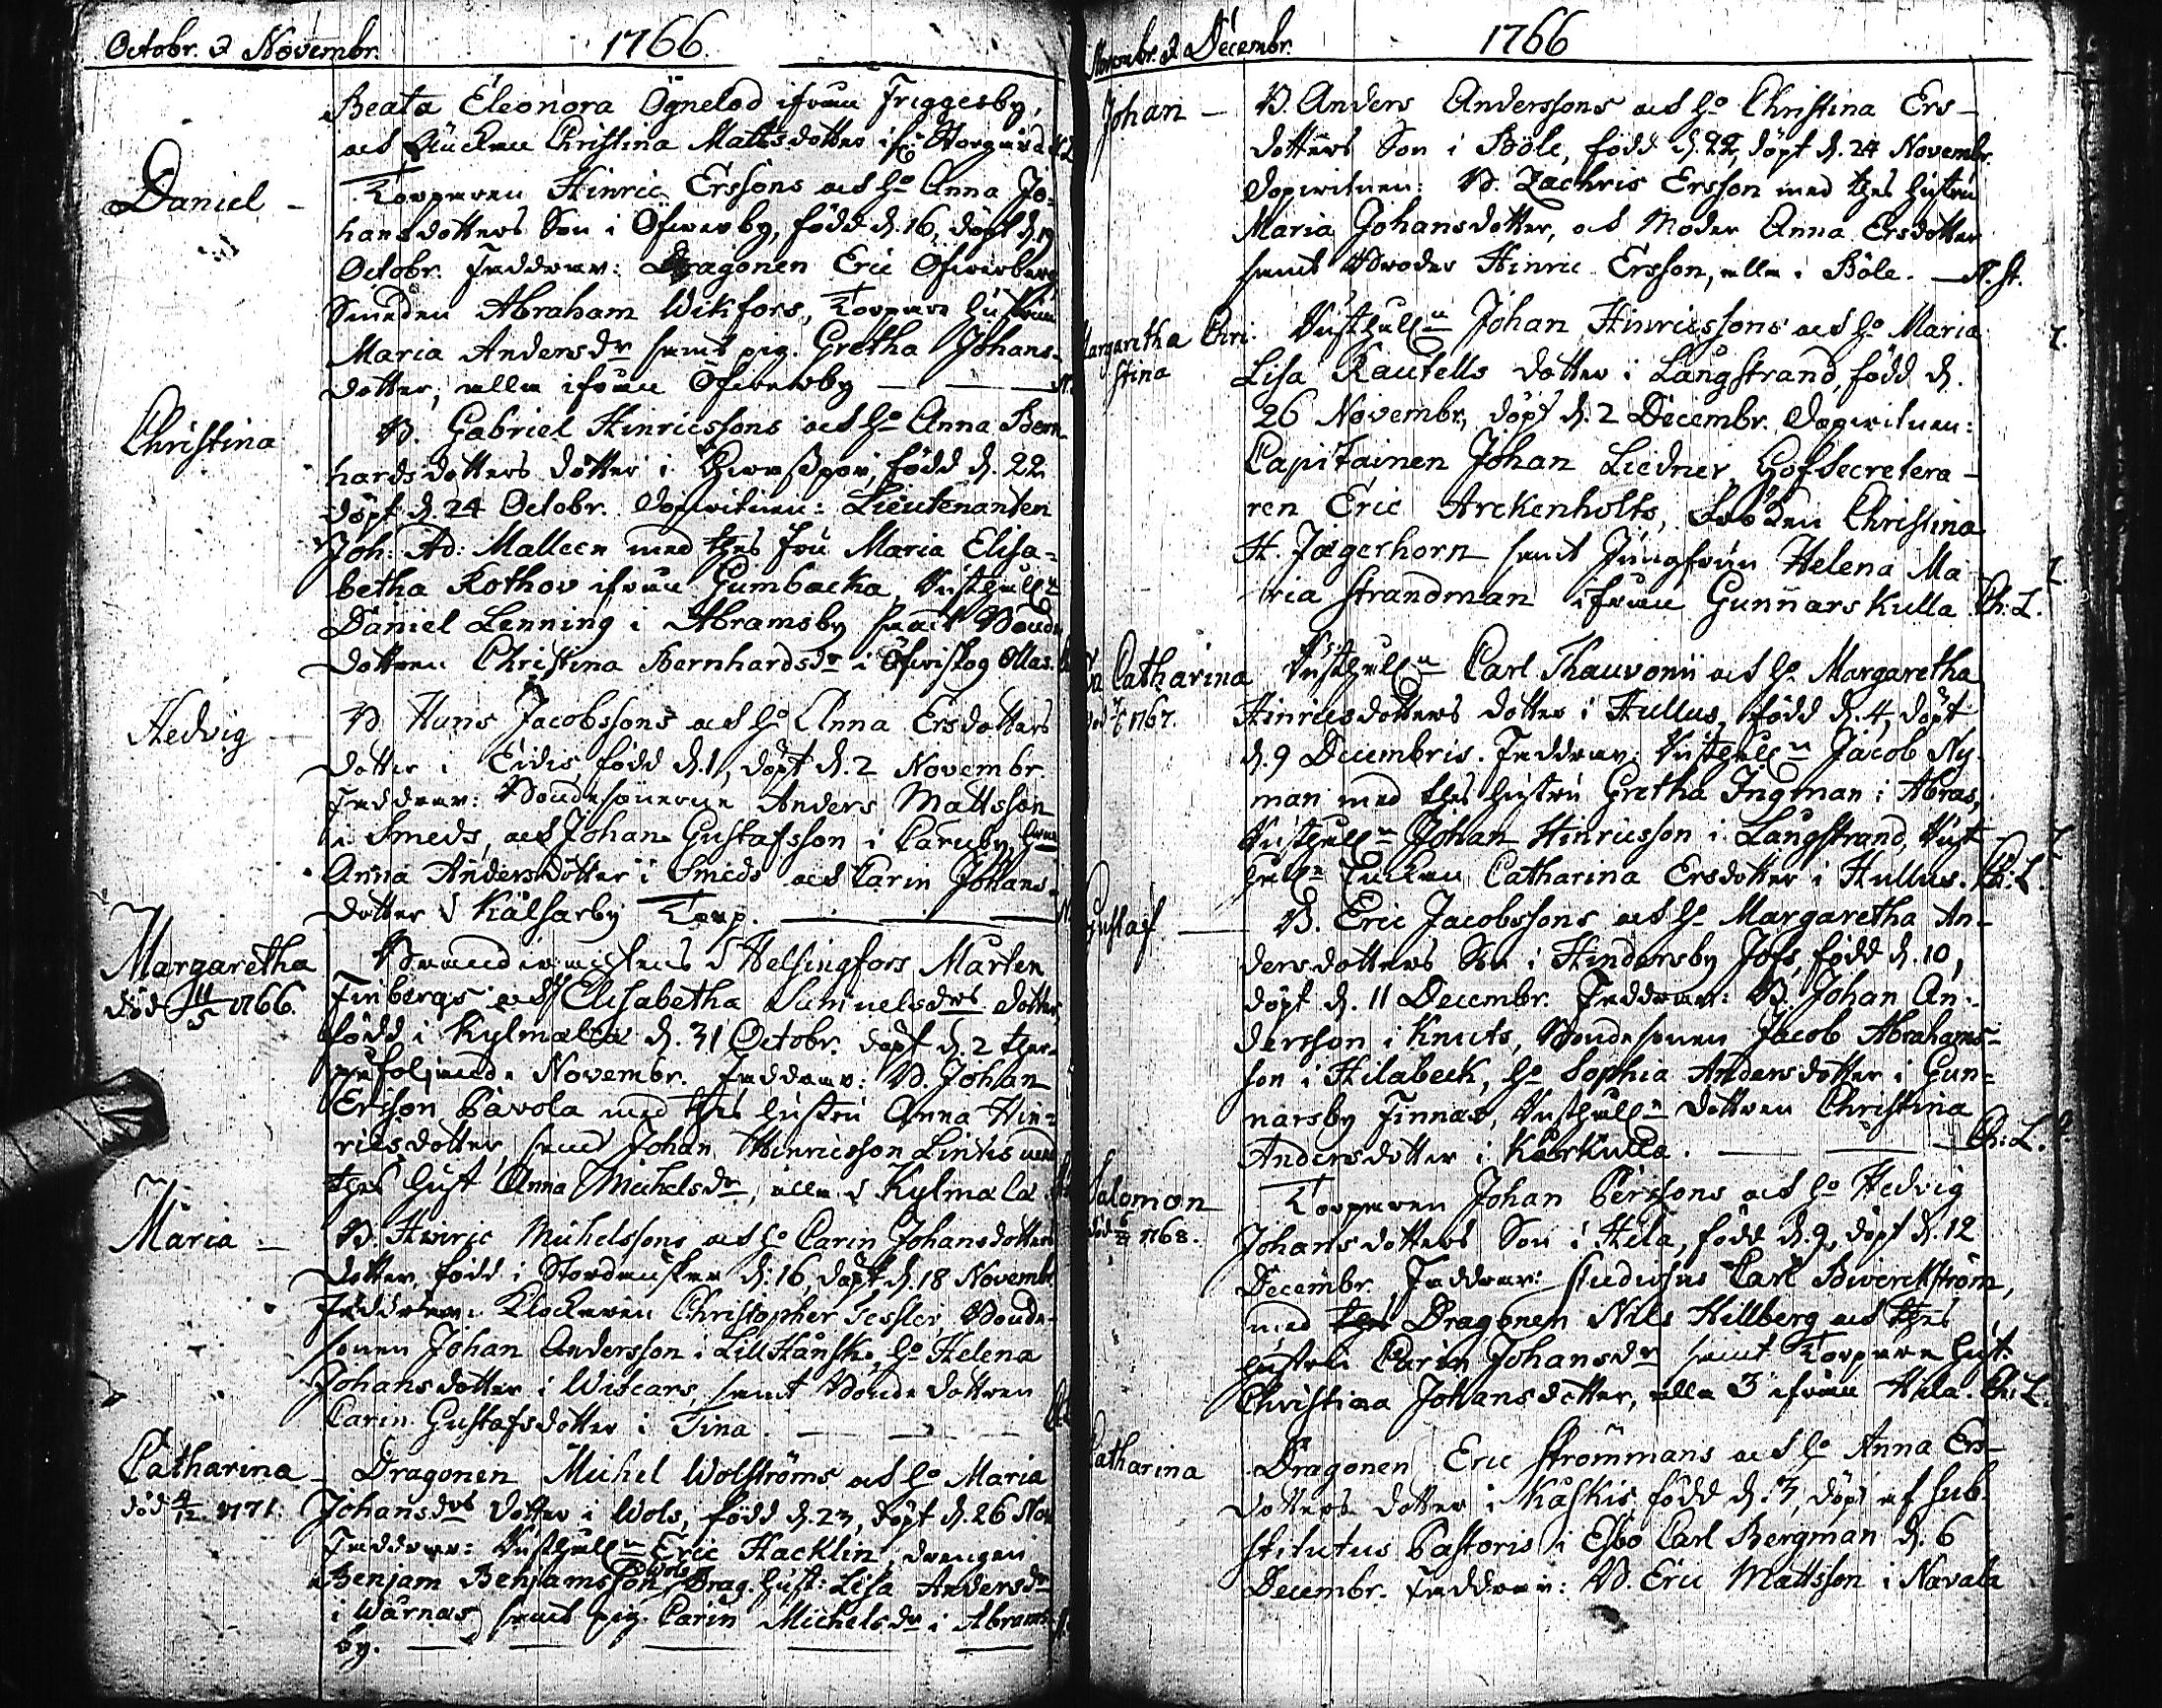 Octobr. & Novembr. 1766
Beata Eleonora Ögnelod ifrån Friggesby,
och Änckan Christina Mattsdotter
Daniel –
Torparen Hinric Erssons och ho Anna Jo-
hansdotters Son i Öfwerby, född d. 16, döpt d. 19
Octobr. Faddrar: Dragonen Eric Öfwerberg
Smeden Abraham Wikfors, Torpare hustrun
Maria Andersdr samt pig. Gretha Johans-
dotter, alla ifrån Öfwerby
Christina
B. Gabriel Hinricssons och ho Anna Bern-
hardsdotters dotter i född d. 22
döpt d. 24 Octobr. Dopwitnen: Lieutenanten
Joh: Ad: Malleen med thes fru Maria Elisa-
betha Rothov ifrån Gumbacka, Rusthåll:n
Daniel Lenning i Abramsby samt Bonde
dottren Christina Bernhardsdr i Öfwitskog Ollas.
Hedvig –
B. Hans Jacobssons och ho Anna Ersdotters
dotter i Eidis, född d. 1, döpt d. 2 Novembr.
Faddrar: Bondesönerne Anders Mattsson
i Smeds, och Johan Gustafsson i
Anna Andersdotter i Smeds och Carin Johans-
dotter i Kälfarby Torp.
Margaretha
död 11/5 1766.
i Helsingfors Mårten
Finbergs och Elisabetha Samuelsdrs dotter,
född i Kylmälä d. 31 Octobr. döpt d. 2 ther-
påföljande Novembr. Faddrar: B. Johan
Ersson Pavola med thes hustru Anna Hin-
ricsdotter, samt Johan Hinricsson Lintis med
thes hust Anna Michelsdr, alla i Kylmälä
Maria –
B. Hinric Michelssons och ho Carin Johansdotters
dotter, född i d. 16, döpt d. 18 Novembr.
Faddrar: Klockaren Christopher Tessler, Bonde-
sonen Johan Andersson i Lill Hånsk, ho Helena
Johansdotter i Wiscars, samt Bonde dottren
Carin Gustafsdotter i Fina.
Catharina –
död 4/12 1771.
Dragonen Michel Wolströms och ho Maria
Johansdrs dotter i Wols, född d. 23, döpt d. 26 Nov
Faddrar: Rusthåll:n Eric Hacklin, drengen
Wols
Benjam Benjamsson, Drag. hust: Lisa Andersdr
i Wårnäs, samt pig. Carin Michelsdr i Abrams-
by.
Novembr. & Decembr. 1766
Johan –
B. Anders Anderssons och ho Christina Ers-
dotters Son i Böle, född d. 22, döpt d. 24 Novembr.
Dopwitnen: B. Zachris Ersson med thes hustru
Maria Johansdotter, och Moder Anna Ersdotter
samt Broder Hinric Ersson, alla i Böle. – N. St.
Margaretha Chri-
stina
Rusthåll:n Johan Hinricssons och ho Maria
Lisa Kautells dotter i Långstrand, född d.
26 Novembr., döpt d. 2 Decembr. Dopwitnen:
Capitainen Johan Liedner, Hofsecretera-
ren Eric Arckenholts, Fröken Christina
H. Jägerhorn samt Jungfrun Helena Ma-
ria Strandman ifrån Gunnarskulla. Ch: L.
Catharina
1767.
Rusthåll:n Carl Thauvonii och ho Margaretha
Hinricsdotters dotter i Hullus, född d. 4, döpt
d. 9 Decembris. Faddrar: Rusthåll:n Jacob Ny-
man med thes hustru Gretha Ingman i Abras,
Rusthåll:n Johan Hinricsson i Långstrand, Rust
håll:n Enckan Catharina Ersdotter i Hullus. Ch: L.
Gustaf –
B. Eric Jacobssons och ho Margaretha An-
dersdotters Son i Hindersby Jofs, född d. 10,
döpt d. 11 Decembr. Faddrar: B. Johan An-
dersson i Knuts, Bondesonen Jacob Abrahams-
son i Hilabeck, ho Sophia Andersdotter i Gun-
narsby Finnas, Rusthåll:n dottren Christina
Andersdotter i Kårkulla. Ch: L.
Salomon
död 1768.
Torparen Johan Perssons och ho Hedvig
Johansdotters Son i Hila, född d. 9, döpt d. 12
Decembr. Faddrar: Studiosus Carl Bwerckström,
med thes Dragonen Nils Hillberg och thes
hustru Carin Johansdr samt Torpare hust:
Christina Johansdotter, alla 3 ifrån Hila. Ch: L.
Catharina
Dragonen Eric Strömmans och ho Anna Ers-
dotters dotter i Kåskis, född d. 3, döpt af Sub-
stitutus Pastoris i Esbo Carl Bergman d. 6
Decembr. Faddrar: B. Eric Mattsson i Navala